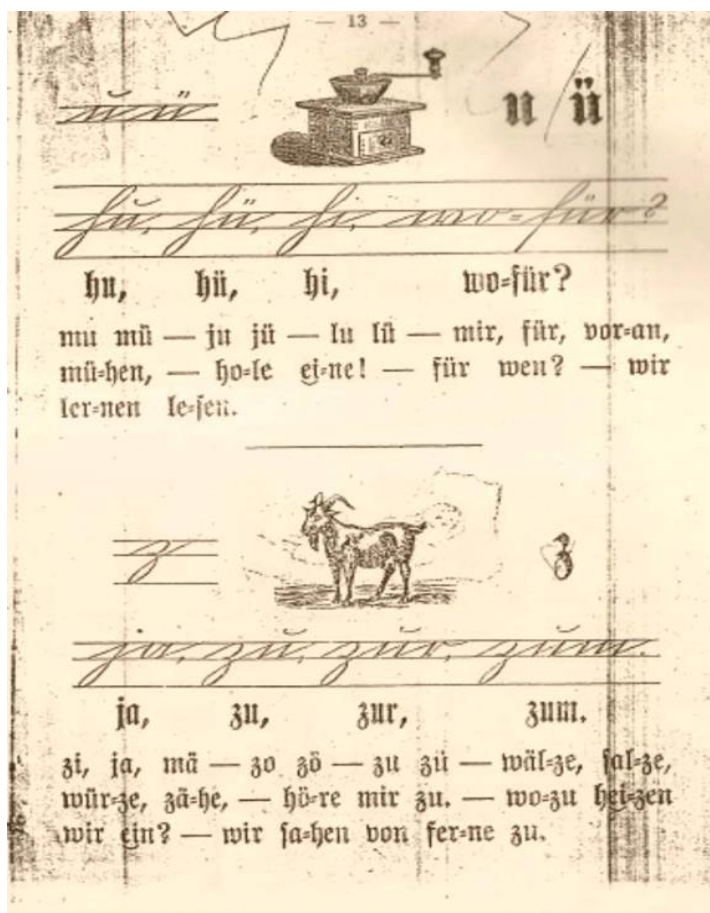 — 13 —
u ü u ü
hu, hü, hi, wo=für?
hu, hü, hi, wo=für?
mu mü — ju jü — lu lü — mir, für, vor=an,
mü=hen, — ho=le ei=ne! — für wen? — wir
ler=nen le=sen.
z z
ja, zu, zur, zum.
ja, zu, zur, zum.
zi, ja, mä — zo zö — zu zü — wäl=ze, sal=ze,
wür=ze, zä=he, — hö=re mir zu. — wo=zu hei=zen
wir ein? — wir sa=hen von fer=ne zu.